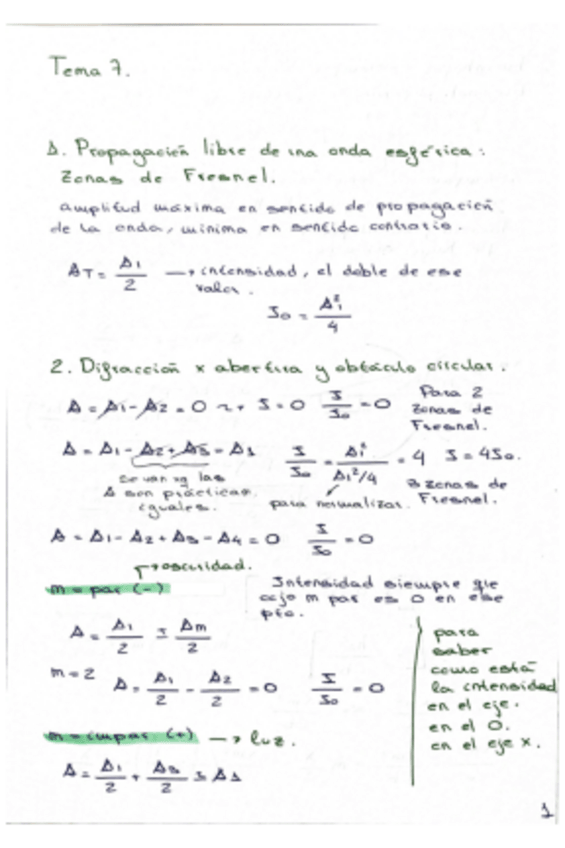 Tema 7.
1. Propagación libre de una onda esférica:
Zonas de Fresnel.
amplitud máxima en sentido de propagación
de la onda, mínima en sentido contrario.
A_T = A_1/2 → intensidad, el doble de ese
valor.
I_0 = A_1^2/4
2. Difracción x abertura y obstáculo circular.
A = A_1 - A_2 = 0 I = 0 I/I_0 = 0 Para 2
zonas de
Fresnel.
A = A_1 - A_2 + A_3 = A_1 I/I_0 = A_1^2/(A_1^2/4) = 4 I = 4I_0.
se van xq las
A son prácticas
iguales.
para normalizar.
3 zonas de
Fresnel.
A = A_1 - A_2 + A_3 - A_4 = 0 I/I_0 = 0
→ oscuridad.
m = par (-)
Intensidad siempre que
coja m par es 0 en ese
pto.
A = A_1/2 ± A_m/2
m = 2 A = A_1/2 - A_2/2 = 0 I/I_0 = 0
para
saber
como está
la intensidad
en el eje.
en el 0.
en el eje x.
m = impar (+) → luz.
A = A_1/2 + A_3/2 = A_1
1